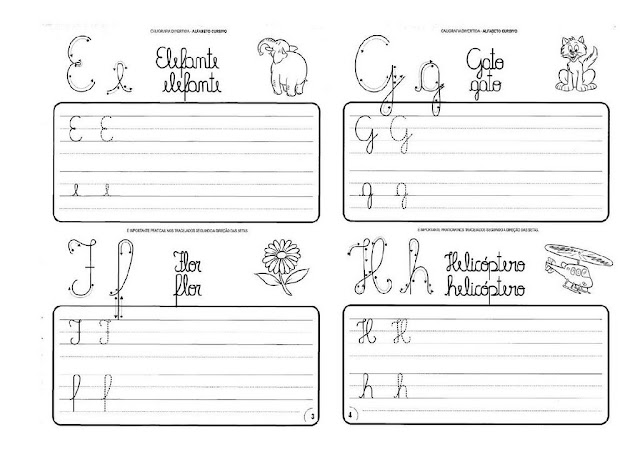 CALIGRAFIA DIVERTIDA - ALFABETO CURSIVO
E e
Elefante
elefante
E E
e e
CALIGRAFIA DIVERTIDA - ALFABETO CURSIVO
G g
Gato
gato
G G
g g
É IMPORTANTE PRATICAR NOS TRACEJADOS SEGUINDO A DIREÇÃO DAS SETAS.
F f
Flor
flor
F F
f f
3
É IMPORTANTE PRATICAR NOS TRACEJADOS SEGUINDO A DIREÇÃO DAS SETAS.
H h
Helicóptero
helicóptero
H H
h h
4